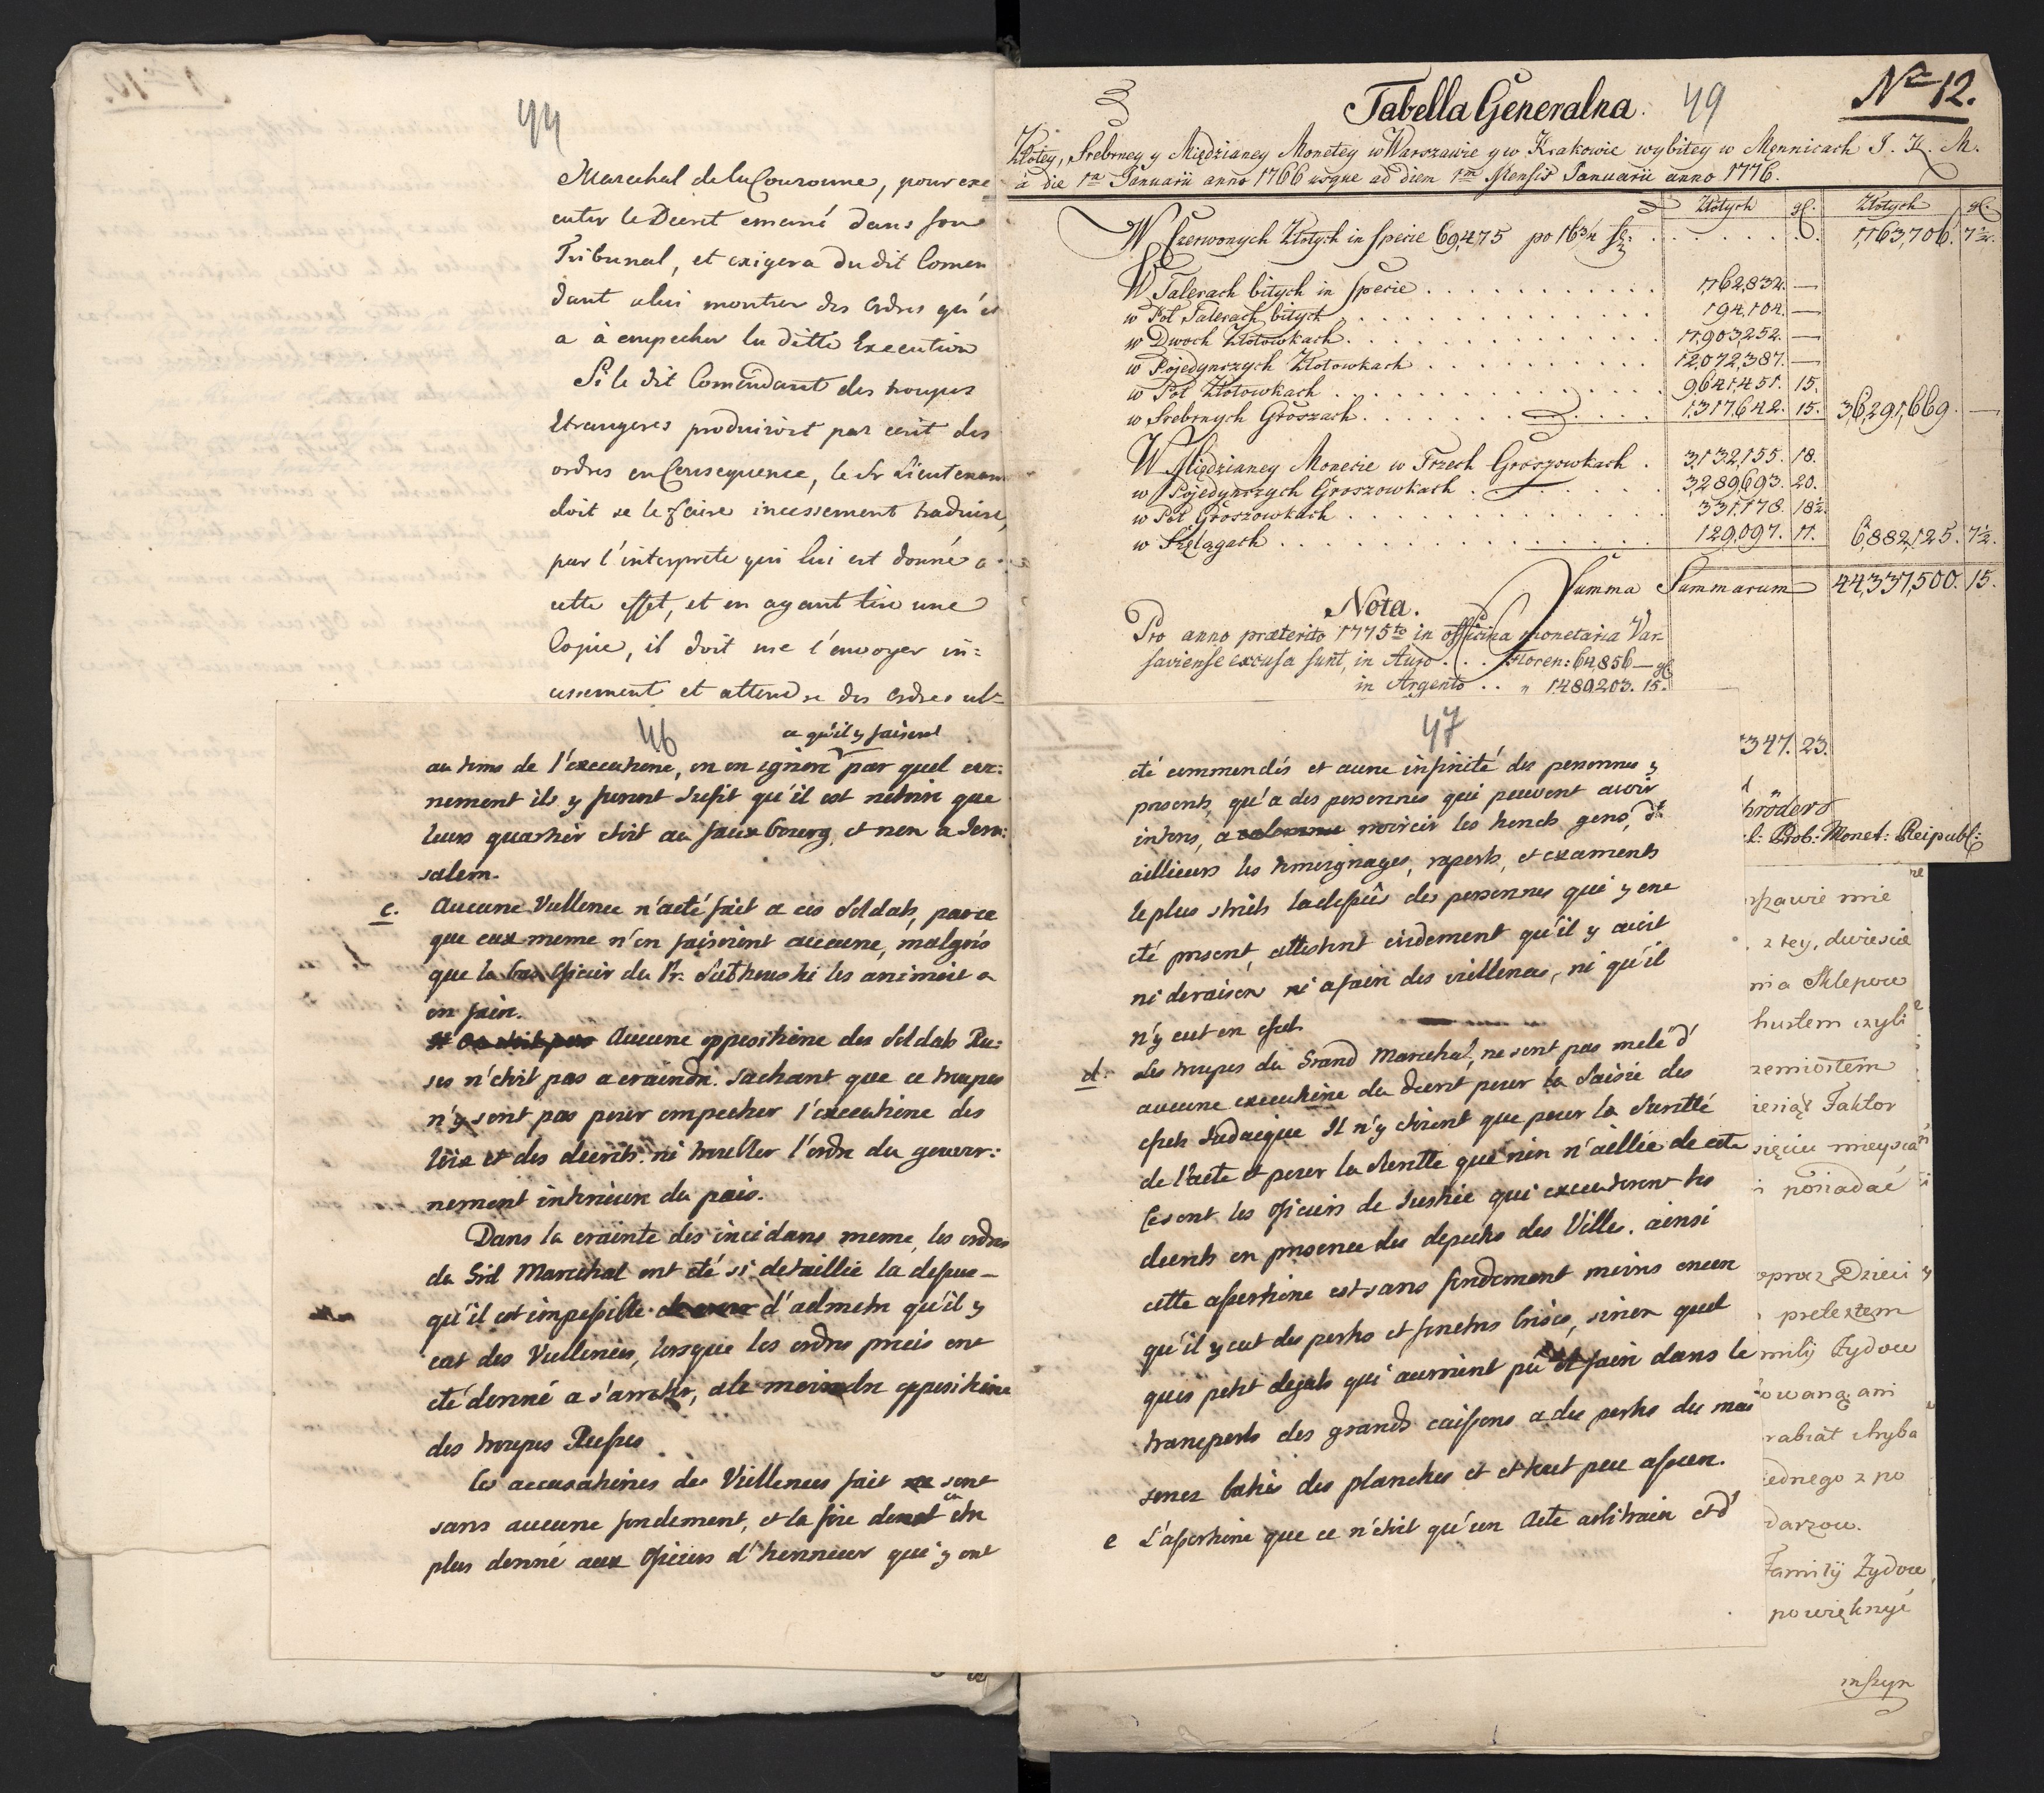 44
Marechal de la Couronne, pour exe
cuter le Decret emané dans son
Tribunal, et exigera du dit Comen
dant a lui montrer des ordres qu'il
a à empecher la ditte Execution
Si le dit Comendant des troupes
Etrangeres produiroit par ecrit des
ordres en Consequence, le Sr Lieutenan
doit se le faire incessement traduire,
par l'interprete qui lui est donné a
cette effet, et en ayant tiré une
Copie, il doit me l'envoyer in=
cessement et attendre des ordres ult
46
ce qu'il y faisent
au tems de l'executione, on en ignore par quel eve:
nement ils y furent sufit qu'il est notoire que
leurs quartier etoit au fauxbourg, et non a Jeru:
salem.
c. Aucune Viellence n'a eté fait a ces Soldats, parce
que eux meme n'en faisoient aucune, malgrés
que la bas Oficier du Pr. Sulkowski les animoit a
en faire.
Aucune oppositione des Soldats Ru:
ses n'etoit pas a craindre. Sachant que ce troupes
n'y sont pas pour empecher l'executione des
loix et des decrets. ni troubler l'ordre du gouver:
nement interieure du pais.
Dans la crainte des incidans meme, les ordres
du Grd Marechal ont eté si detaillie la dessu-
qu'il est impossible d'admetre qu'il y
eut des Viellences, lorsque les ordres precis ont
eté donné a s'arreter, a le moindre oppositione
des troupes Russes.
les accusationes des Viellences fait sont
sans aucune fondement, et la foie doit en etre
plus donné aux Oficiers d'honneur que y ont
47
eté commendés et a une infinité des personnes y
presents, qu'a des personnes qui peuvent avoir
interes, a noircir les honets gens, d'
aillieurs les temoignages, raports, et examents
le plus strict la dessus des personnes qui y ont
eté present, attestent evidement qu'il y avoit
ni deraison ni a faire des viellences, ni qu'il
n'y eut en efet.
d. Les troupes du Grand Marechal, ne sont pas melé d'
aucune executione du decret pour la Saisie des
efets Judaique Il n'y etoient que pour la Suretté
de l'acte et pour la Surette que rien n'aillie de coté
Ce sont les Oficiers de Justice qui executerent les
decrets en presence des deputés des Ville. ainsi
cette assertione est sans fondement moins encor
qu'il y eut des portes et fenetres brisées, sinon quel
ques petit degats qui auroient pu se faire dans le
transports des grands caissons a des portes des mai
sones baties des planches et et tout peu assurer.
e L'assertione que ce n'etoit qu'un Acte arbitraire et d'
Tabella Generalna. 49
No 12.
Złotey, Srebrney y Miedzianey Monetey w Warszawie y w Krakowie wybitey w Mennicach J. K. M.
à die 1ma Januarii anno 1766 usque ad diem 1mam Mensis Januarii anno 1776.
Złotych gr. Złotych gr.
W Czerwonych Złotych in specie 69,475 po 16¾ fl: 1,163,706. 7½.
W Talerach bitych in specie 1,762,832. —
w Poł Talerach bitych 194,104. —
w Dwoch Złotowkach 11,903,252. —
w Pojedynczych Złotowkach 12,072,387. —
w Poł Złotowkach 9,641,451. 15.
w Srebrnych Groszach 1,317,642. 15. 36,291,669. —
W Miedzianey Monecie w Trzech Groszowkach 3,132,155. 18.
w Pojedynczych Groszowkach 3,289,693. 20.
w Poł Groszowkach 331,178. 18½.
w Szelągach 129,097. 11. 6,882,125. 7½.
Summa Summarum 44,337,500. 15.
Nota.
Pro anno præterito 1775to in officina monetaria Var-
saviense excusa sunt, in Auro Floren: 64,856 — gl
in Argento " 1,489,203. 15.
347. 23.
hröder
Prob: Monet: Reipubl:
rszawie mie
z tey, dwiescie
nia Sklepow
husłem czyli
zemiosłem
Faktor
sięciu mieysca
posiadać
oprocz Dzieci y
pretextem
milij Żydow
owaną ani
rabiał chyba
iednego z po
darzow.
Familij Żydow
inszyn